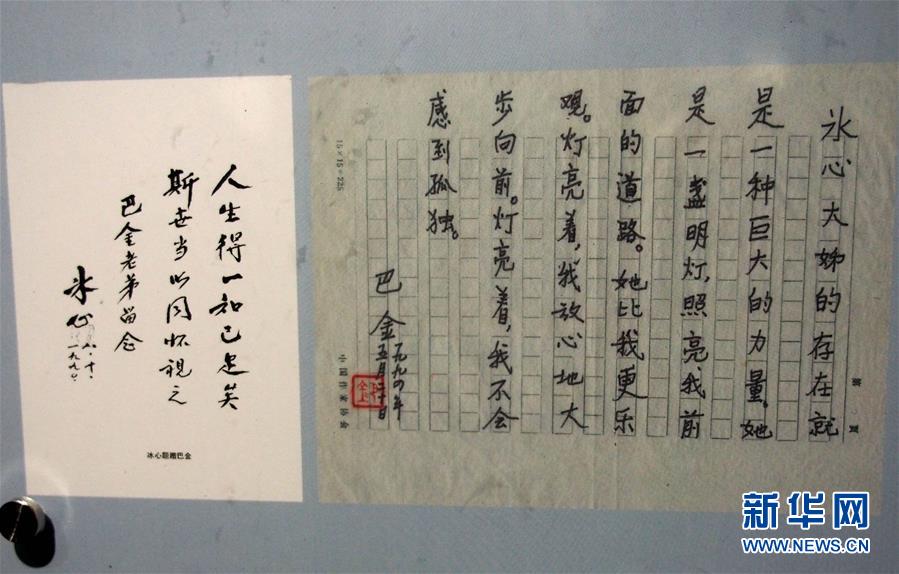 人生得一知己足矣
斯世当以同怀视之
巴金老弟留念
冰心
冰心題赠巴金
第 页
冰心大姊的存在就
是一种巨大的力量。她
是一盏明灯,照亮我前
面的道路。她比我更乐
观。灯亮着,我放心地大
步向前。灯亮着,我不会
感到孤独。
巴金
一九九四年
五月二十日
15×15=225
中国作家协会
新华网
WWW.NEWS.CN